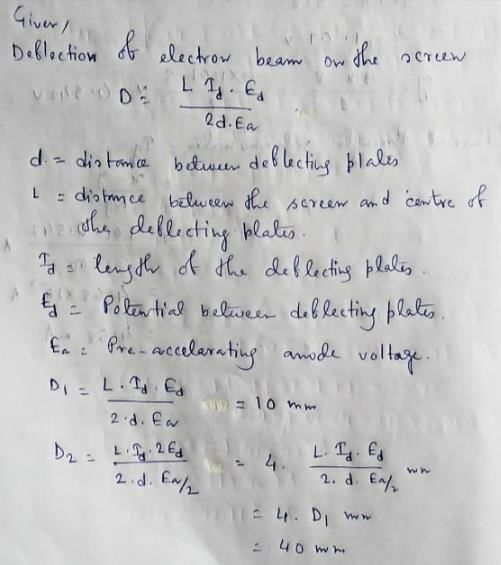 Given,
Deflection of electron beam on the screen
D = L I_d . E_d / 2d.Ea
d = distance between deflecting plates
L = distance between the screen and centre of
the deflecting plates.
I_d = length of the deflecting plates.
E_d = Potential between deflecting plates.
Ea = Pre-accelarating anode voltage.
D1 = L . I_d . E_d / 2.d.Ea = 10 mm
D2 = L . I_d . 2E_d / 2.d.Ea/2 = 4. L. I_d. E_d / 2. d. Ea/2 mm
= 4. D1 mm
= 40 mm